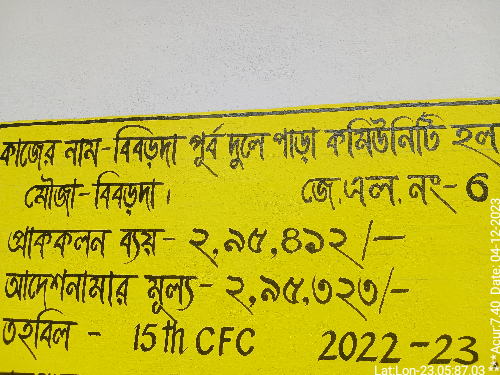 কাজের নাম - বিবড়দা পূর্ব দুলে পাড়া কমিউনিটি হল
মৌজা - বিবড়দা। জে.এল. নং - 6
প্রাককলন ব্যয় - ২,৯৫,৪১২/-
আদেশনামার মূল্য - ২,৯৫,৩২৩/-
তহবিল - 15th CFC 2022-23
Lat:Lon-23.05:87.03
Date. 04-12-2023